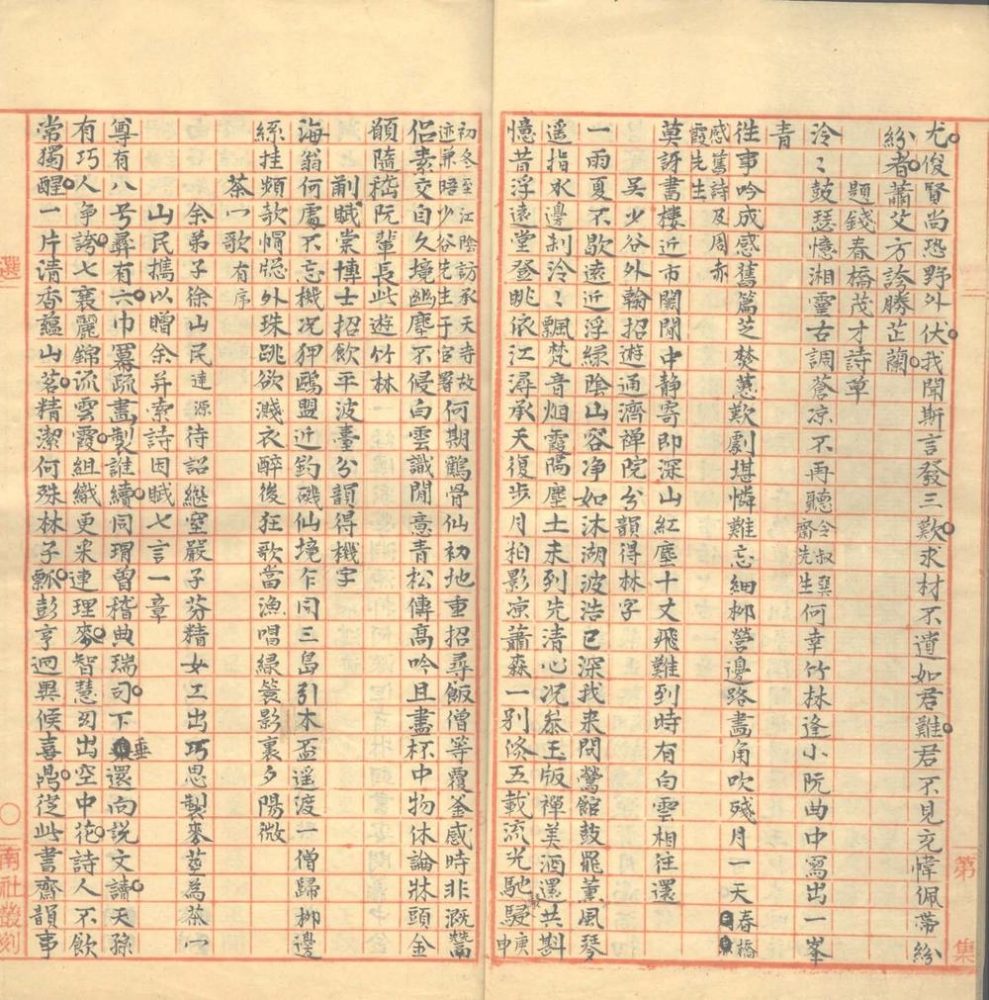 尤俊賢尚恐野外伏我聞斯言發三歎求材不遺如君難君不見充幃佩帶紛
紛者蕭艾方誇勝芷蘭
題錢春橋茂才詩草
泠〻鼓瑟憶湘靈古調蒼凉不再聽令叔巽齋先生何幸竹林逢小阮曲中寫出一峯
青
往事吟成感舊篇芝焚蕙歎劇堪憐難忘細柳營邊路畫角吹殘月一天春橋
感舊詩及周赤霞先生
莫訝書樓近市闤闠中静寄即深山紅塵十丈飛難到時有白雲相往還
吳少谷外翰招遊通濟禪院分韻得林字
一雨夏不歇遠近浮綠陰山容净如沐湖波浩已深我来問鶯館鼓罷薰風琴
遥指水邊刹泠〻飄梵音烟霞隔塵土未到先清心况叅玉版禪美酒還共斟
憶昔浮遠堂登眺依江潯承天復步月柏影凉蕭森一别流五載流光馳駸庚申
初冬至江陰訪承天寺故迹兼晤少谷先生于官署何期鶴骨仙初地重招尋飯僧等覆釜感時非溉鬵
侣素交自久境幽塵不侵白雲識閒意青松傳高吟且盡杯中物休論牀頭金
願隨嵇阮輩長此遊竹林
蒯賦棠博士招飲平波臺分韻得機字
海翁何處不忘機况狎鷗盟近釣磯仙境乍同三島引木盃遥渡一僧歸柳邊
絲挂頻欹帽牕外珠跳欲濺衣醉後狂歌當漁唱緑簑影裏夕陽微
茶一歌有序
余弟子徐山民達源待詔繼室嚴子芬精女工出巧思製麥莖為茶一
山民攜以贈余并索詩因賦七言一章
尊有八号彝有六巾羃疏畫製誰續同琄曽稽典瑞司下垂還向説文讀天孫
有巧人争誇七襄麗錦流雲霞組織更采連理麥智慧幻出空中花詩人不飲
常獨醒一片清香蘊山茗精潔何殊林子瓢彭亨迥異侯喜鼎從此書齋韻事
第 集
選
南社叢刻